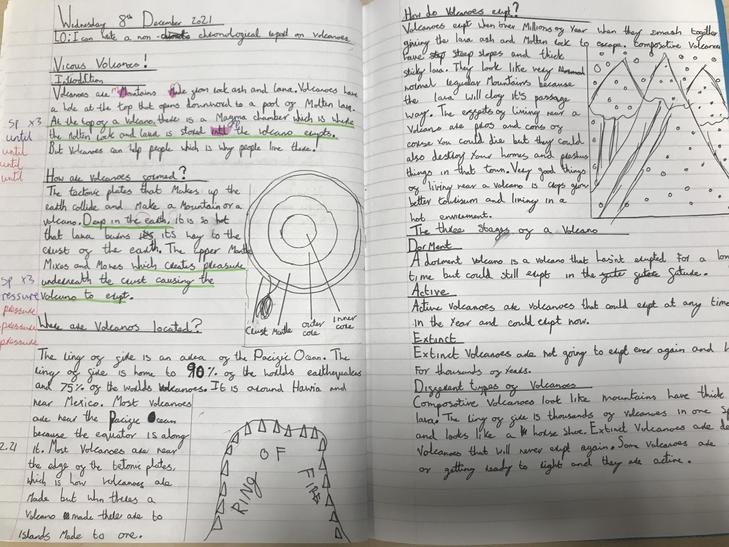 Wednesday 8th December 2021
LO: I can write a non - chronological report on volcanoes
Vicous Volcanoes!
Introdution
Volcanoes are Mountains Made from rock ash and Lava. Volcanoes have
a hole at the top that opens downword to a pool of Molten lava.
At the top of a volcano there is a Magma chamber which is where
the molten rock and lava is stored until the volcano erupts.
But Volcanoes can help people which is why people live there!
sp x3
until
until
until
until
How are Volcanoes formed?
The tectonic plates that Makes up the
earth collide and Make a Mountain or a
volcano. Deep in the earth, it is so hot
that lava burns it's way to the
crust of the earth. The upper Mantle
Mixes and Moves which creates pressure
underneath the crust causing the
Volcano to erupt.
sp x3
pressure
pressure
pressure
pressure
Crust Mantle outer core inner core
Where are Volcanos located?
The ring of fire is an area of the Pacific Ocean. The
ring of fire is home to 90% of the worlds earthquakes
and 75% of the worlds volcanoes. It is around Hawia and
near Mexico. Most volcanoes
are near the Pacific Ocean
because the equator is along
it. Most Volcanoes are near
the edge of the tetonic plates.
which is how volcanoes are
Made but whn theres a
Volcano made there are to
Islands Made to one.
2.21
RING OF FIRE
How do Volcanoes erupt?
Volcanoes erupt when over Millions of Year when they smash together
giving the lava ash and Molten rock to escape. Composotive Volcanoes
have steep slopes and thick
sticky lava. They look like very
normal regular Mountains because
the lava will clog it's passage
way. The effects of living near a
Volcano are pros and cons of
course you could die but they could
also destroy your homes and
things in that town. Very good things
of living near a volcano is crops grow
better tourisum and living in a
hot enviroment.
The three stages of a Volcano
Dorment
A dorment volcano is a volcano that hasint erupted for a lon
time but could still erupt in the future.
Active
Active volcanoes are volcanoes that could erupt at any time
in the Year and could erupt now.
Extinct
Extinct Volcanoes are not going to erupt ever again and
For thousands of Years.
Different types of Volcanoes
Composotive Volcanoes look like mountains have thick
lava. The ring of fire is thousands of volcanoes in one
and looks like a horse shue. Extinct Volcanoes are
Volcanoes that will never erupt again. Some volcanoes are
or getting ready to light and they are active.